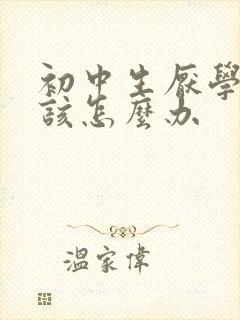 初中生厭學
該怎麼办
溫家偉